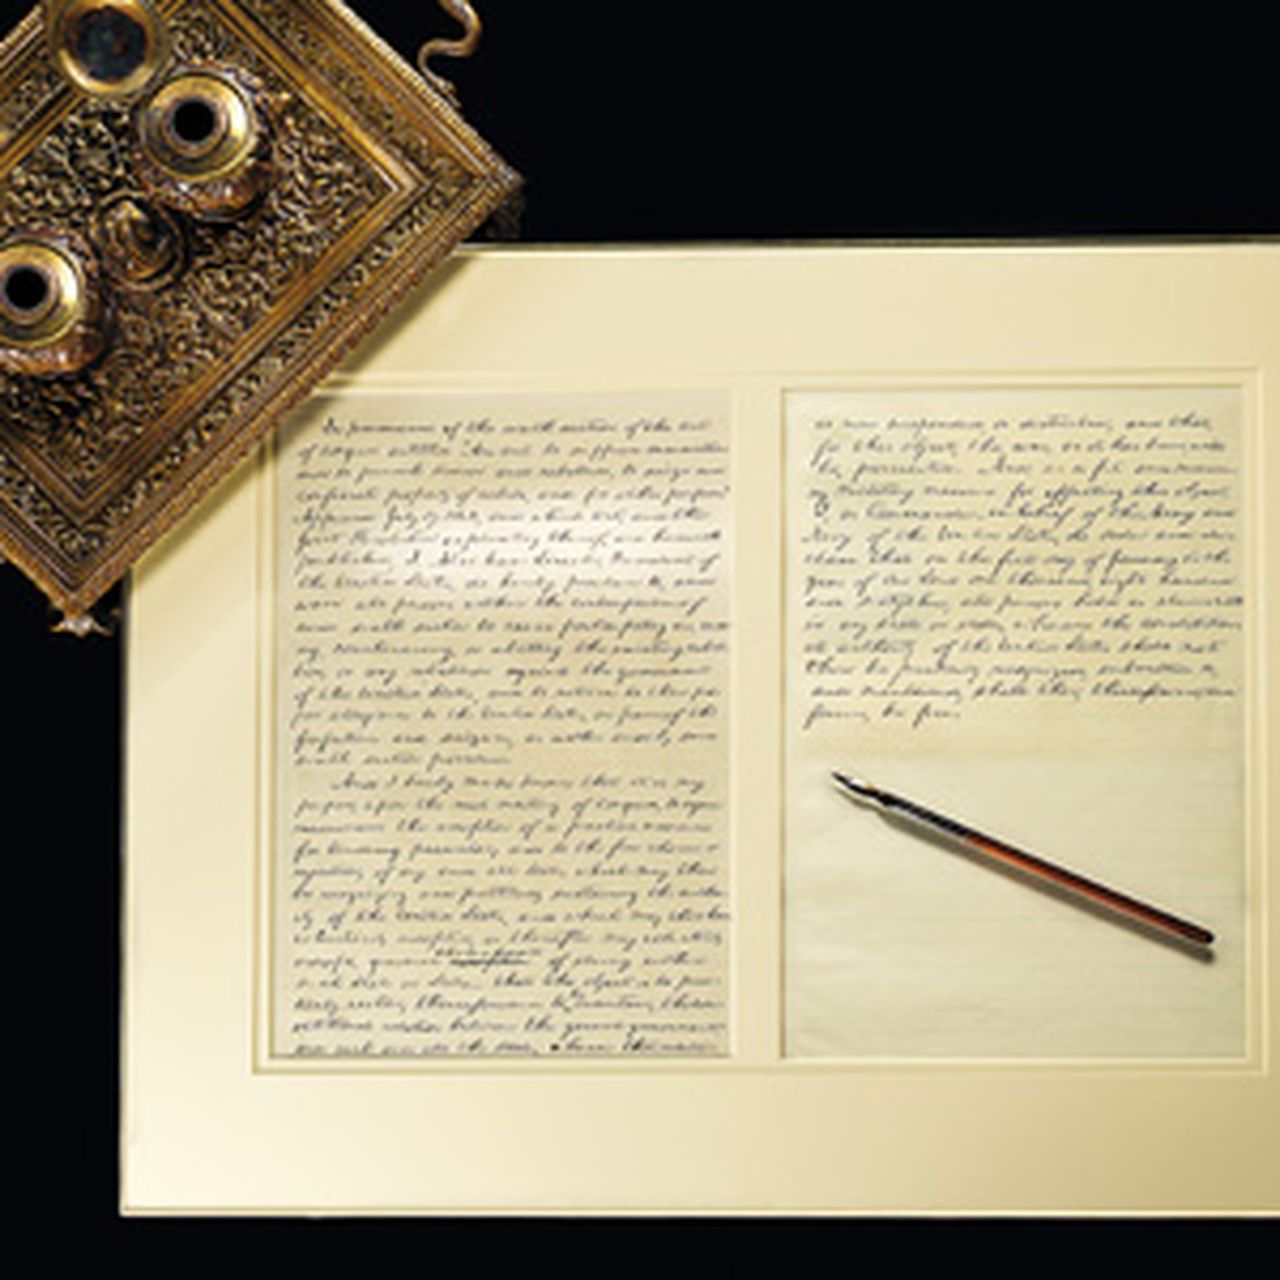 In pursuance of the sixth section of the act
of congress entitled "An act to suppress insurrection
and to punish treason and rebellion, to seize and
confiscate property of rebels, and for other purposes"
Approved July 17, 1862, and which act, and the
Joint Resolution explanatory thereof, are herewith
published, I, Abraham Lincoln, President of
the United States, do hereby proclaim to, and
warn all persons within the contemplation of
said sixth section to cease participating in, aid-
ing, countenancing, or abetting the existing rebel-
lion, or any rebellion against the government
of the United States, and to return to their pro-
per allegiance to the United States, on pain of the
forfeitures and seizures, as within and by said
sixth section provided.
And I hereby make known that it is my
purpose, upon the next meeting of Congress, to again
recommend the adoption of a practical measure
for tendering pecuniary aid to the free choice or
rejection, of any and all States which may then
be recognizing and practically sustaining the author-
ity of the United States, and which may then have
voluntarily adopted, or thereafter may voluntarily
adopt, gradual abolishment of slavery within
such State or States that the object is to prac-
tically restore, thenceforward to be maintained, the con-
stitutional relation between the general government,
and each, and all the states, wherein that relation
is now suspended, or disturbed; and that,
for this object, the war, as it has been, will
be, prosecuted. And, as a fit and necessa-
ry military measure for effecting this object,
I, as Commander-in-Chief of the Army and
Navy of the United States, do order and de-
clare that on the first day of January in the
year of Our Lord one thousand, eight hundred
and sixtythree, all persons held as slaves with-
in any state or states, wherein the constitution-
al authority of the United States shall not
then be practically recognized, submitted to,
and maintained, shall then, thenceforward, and
forever, be free.